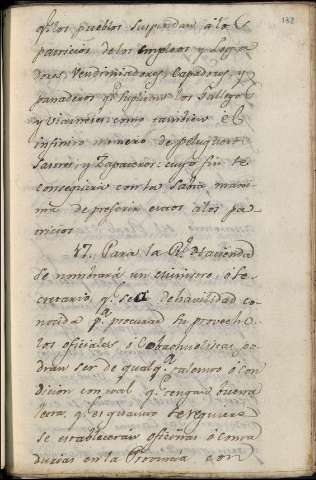 132
q.e los pueblos suspendan á los
patricios de los empleos y Sega
dores, Vendimiadores, Capadores, y
panaderos q.e suplian los Gallegos
y : como tambien el
infinito numero de peluqueros
Sastres, y Zapateros: cuyo fin se
conseguirá con la sabia maxi
ma de preferir estos á los pa
tricios
47. Para la R.l Hacienda
se nombrará un ministro, ó Se
cretario, q.e sea de havilidad co
nocida p.a procurar su provecho.
los oficiales ó Covachuelistas po
dran ser de qualq.a talento ó con
dicion con tal q.e tengan buena
letra, q.e es quanto se requiere
se estableceran oficinas ó conta
durias en la Provincia con